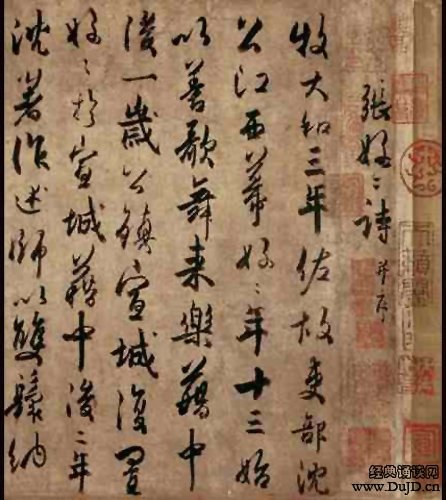 張好〻詩 并序
牧大和三年佐故吏部沈
公江西幕好〻年十三始
以善歌舞来樂籍中
後一歲公鎮宣城復置
好〻於宣城籍中後二年
沈著作述師以雙鬟納
经典诵读网
www.DuJD.cn